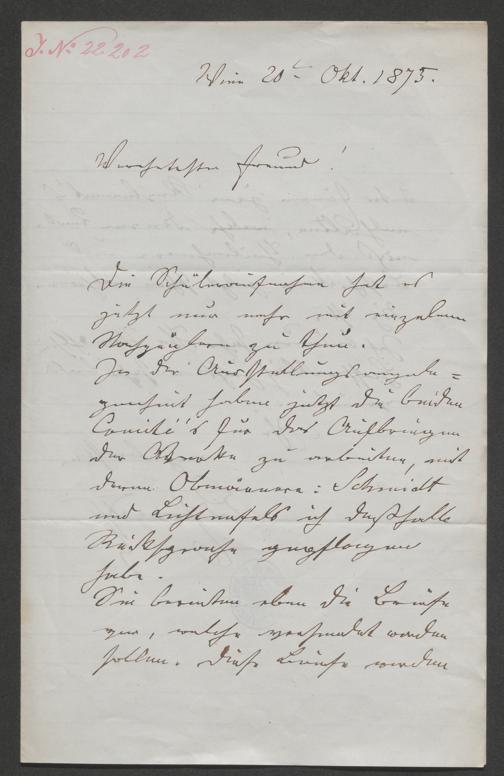 J. № 22.202
Wien 20t Okt. 1875.
Verehrtester Freund!
Die Schüleraufnahme hat es
jetzt nur mehr mit einzelnen
Nachzüglern zu thun.
In der Ausstellungsangele=
genheit haben jetzt die beiden
Comité's für das Aufbringen
der Werke zu arbeiten, mit
deren Obmännern: Schmidt
und Lichtenfels ich deßhalb
Rücksprache gepflogen
habe.
Sie bereiten eben die Briefe
vor, welche versendet werden
sollen. Diese Briefe werden